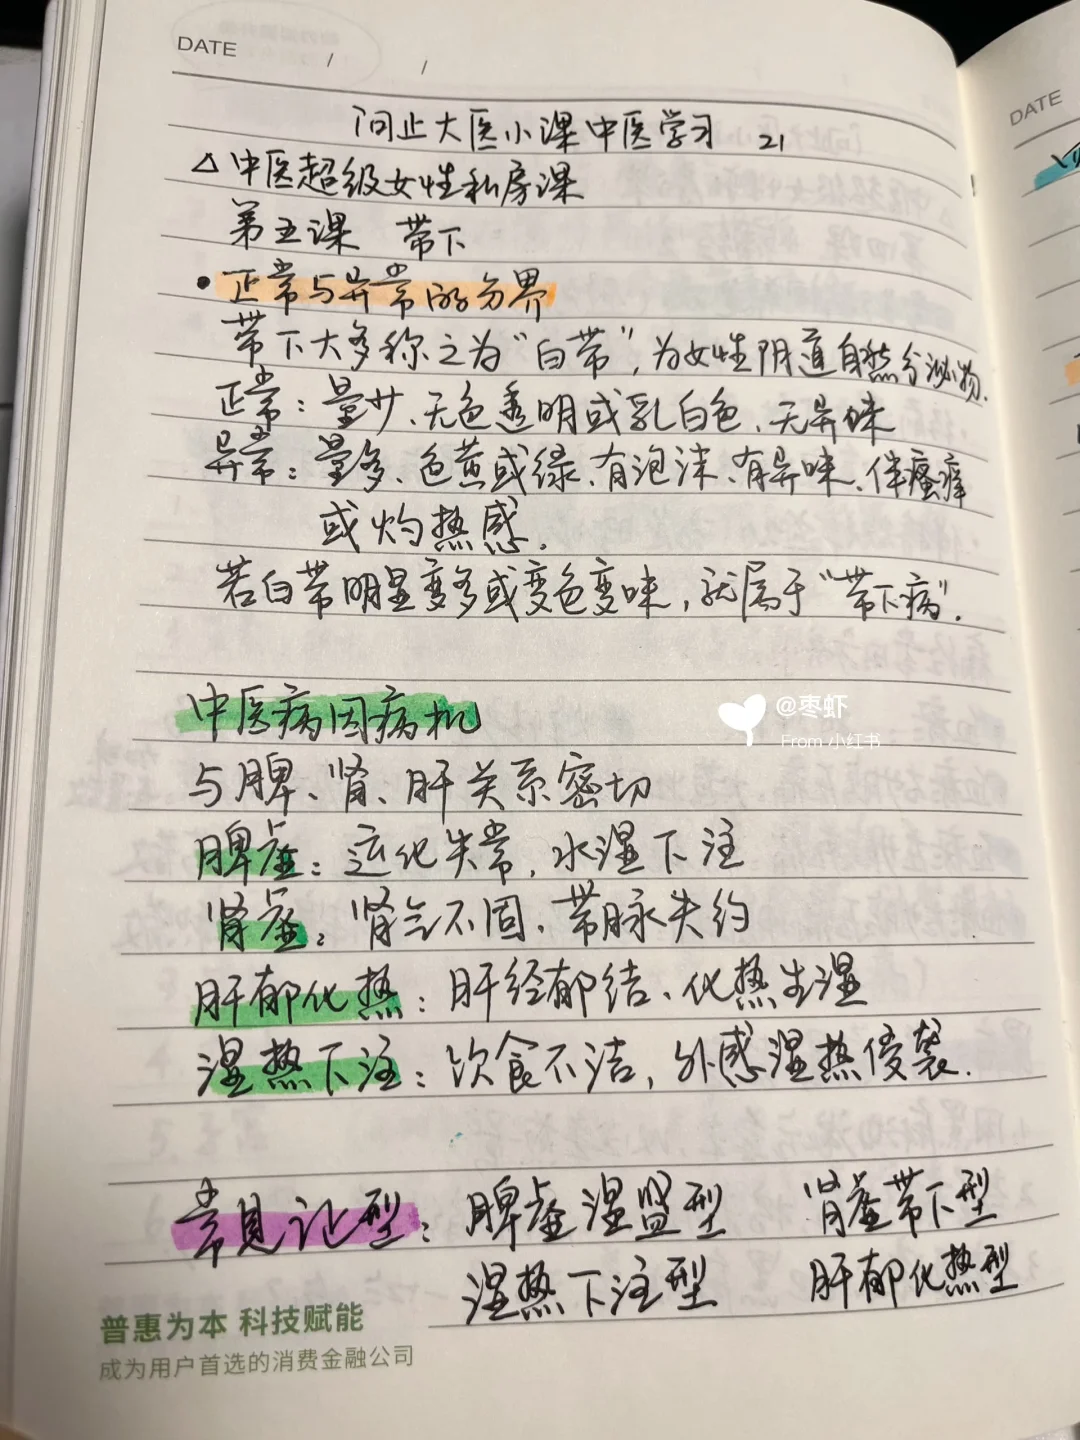 DATE / /
问止大医小课中医学习 21
△中医超级女性私房课
第五课 带下
•正常与异常的分界
带下大多称之为“白带”,为女性阴道自然分泌物.
正常:量少、无色透明或乳白色、无异味
异常:量多、色黄或绿、有泡沫、有异味、伴瘙痒
或灼热感.
若白带明显变多或变色变味,就属于“带下病”.
中医病因病机
与脾、肾、肝关系密切
脾虚:运化失常,水湿下注
肾虚:肾气不固、带脉失约
肝郁化热:肝经郁结、化热生湿
湿热下注:饮食不洁,外感湿热侵袭.
常见证型:脾虚湿盛型 肾虚带下型
湿热下注型 肝郁化热型
普惠为本 科技赋能
成为用户首选的消费金融公司
@枣虾
From 小红书
DATE